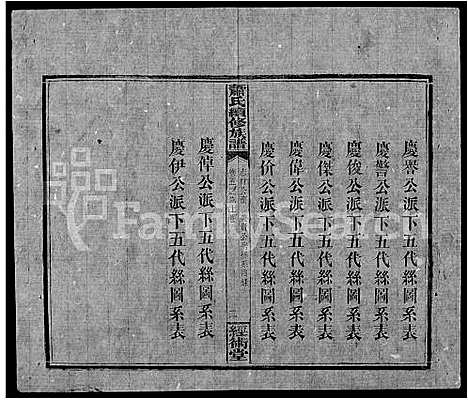 慶譽公派下五代絲圖系表
慶警公派下五代絲圖系表
慶俊公派下五代絲圖系表
慶傑公派下五代絲圖系表
慶偉公派下五代絲圖系表
慶价公派下五代絲圖系表
蕭氏續修族譜
經術堂
慶倬公派下五代絲圖系表
慶伊公派下五代絲圖系表
FamilySearch